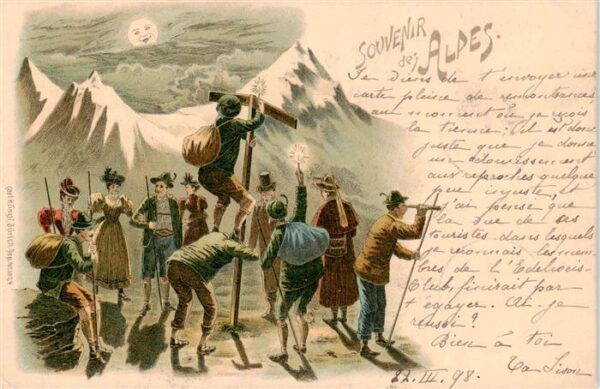 SOUVENIR
des ALPES.
Je viens de t'envoyer une
carte pleine de remontrances,
au moment où je reçois
la tienne; il est donc
juste que je donne
un adoucissement
aux reproches quelque
peu injustes, et
j'ai pensé que
la vue de ces
touristes dans lesquels
je reconnais les mem-
bres de l'Edelweis-
Club, finirait par
t'égayer. Ai-je
réussi?
Bien à toi
Ta Lison
22. III. 98.
Carl Künzli, Zürich Dep.